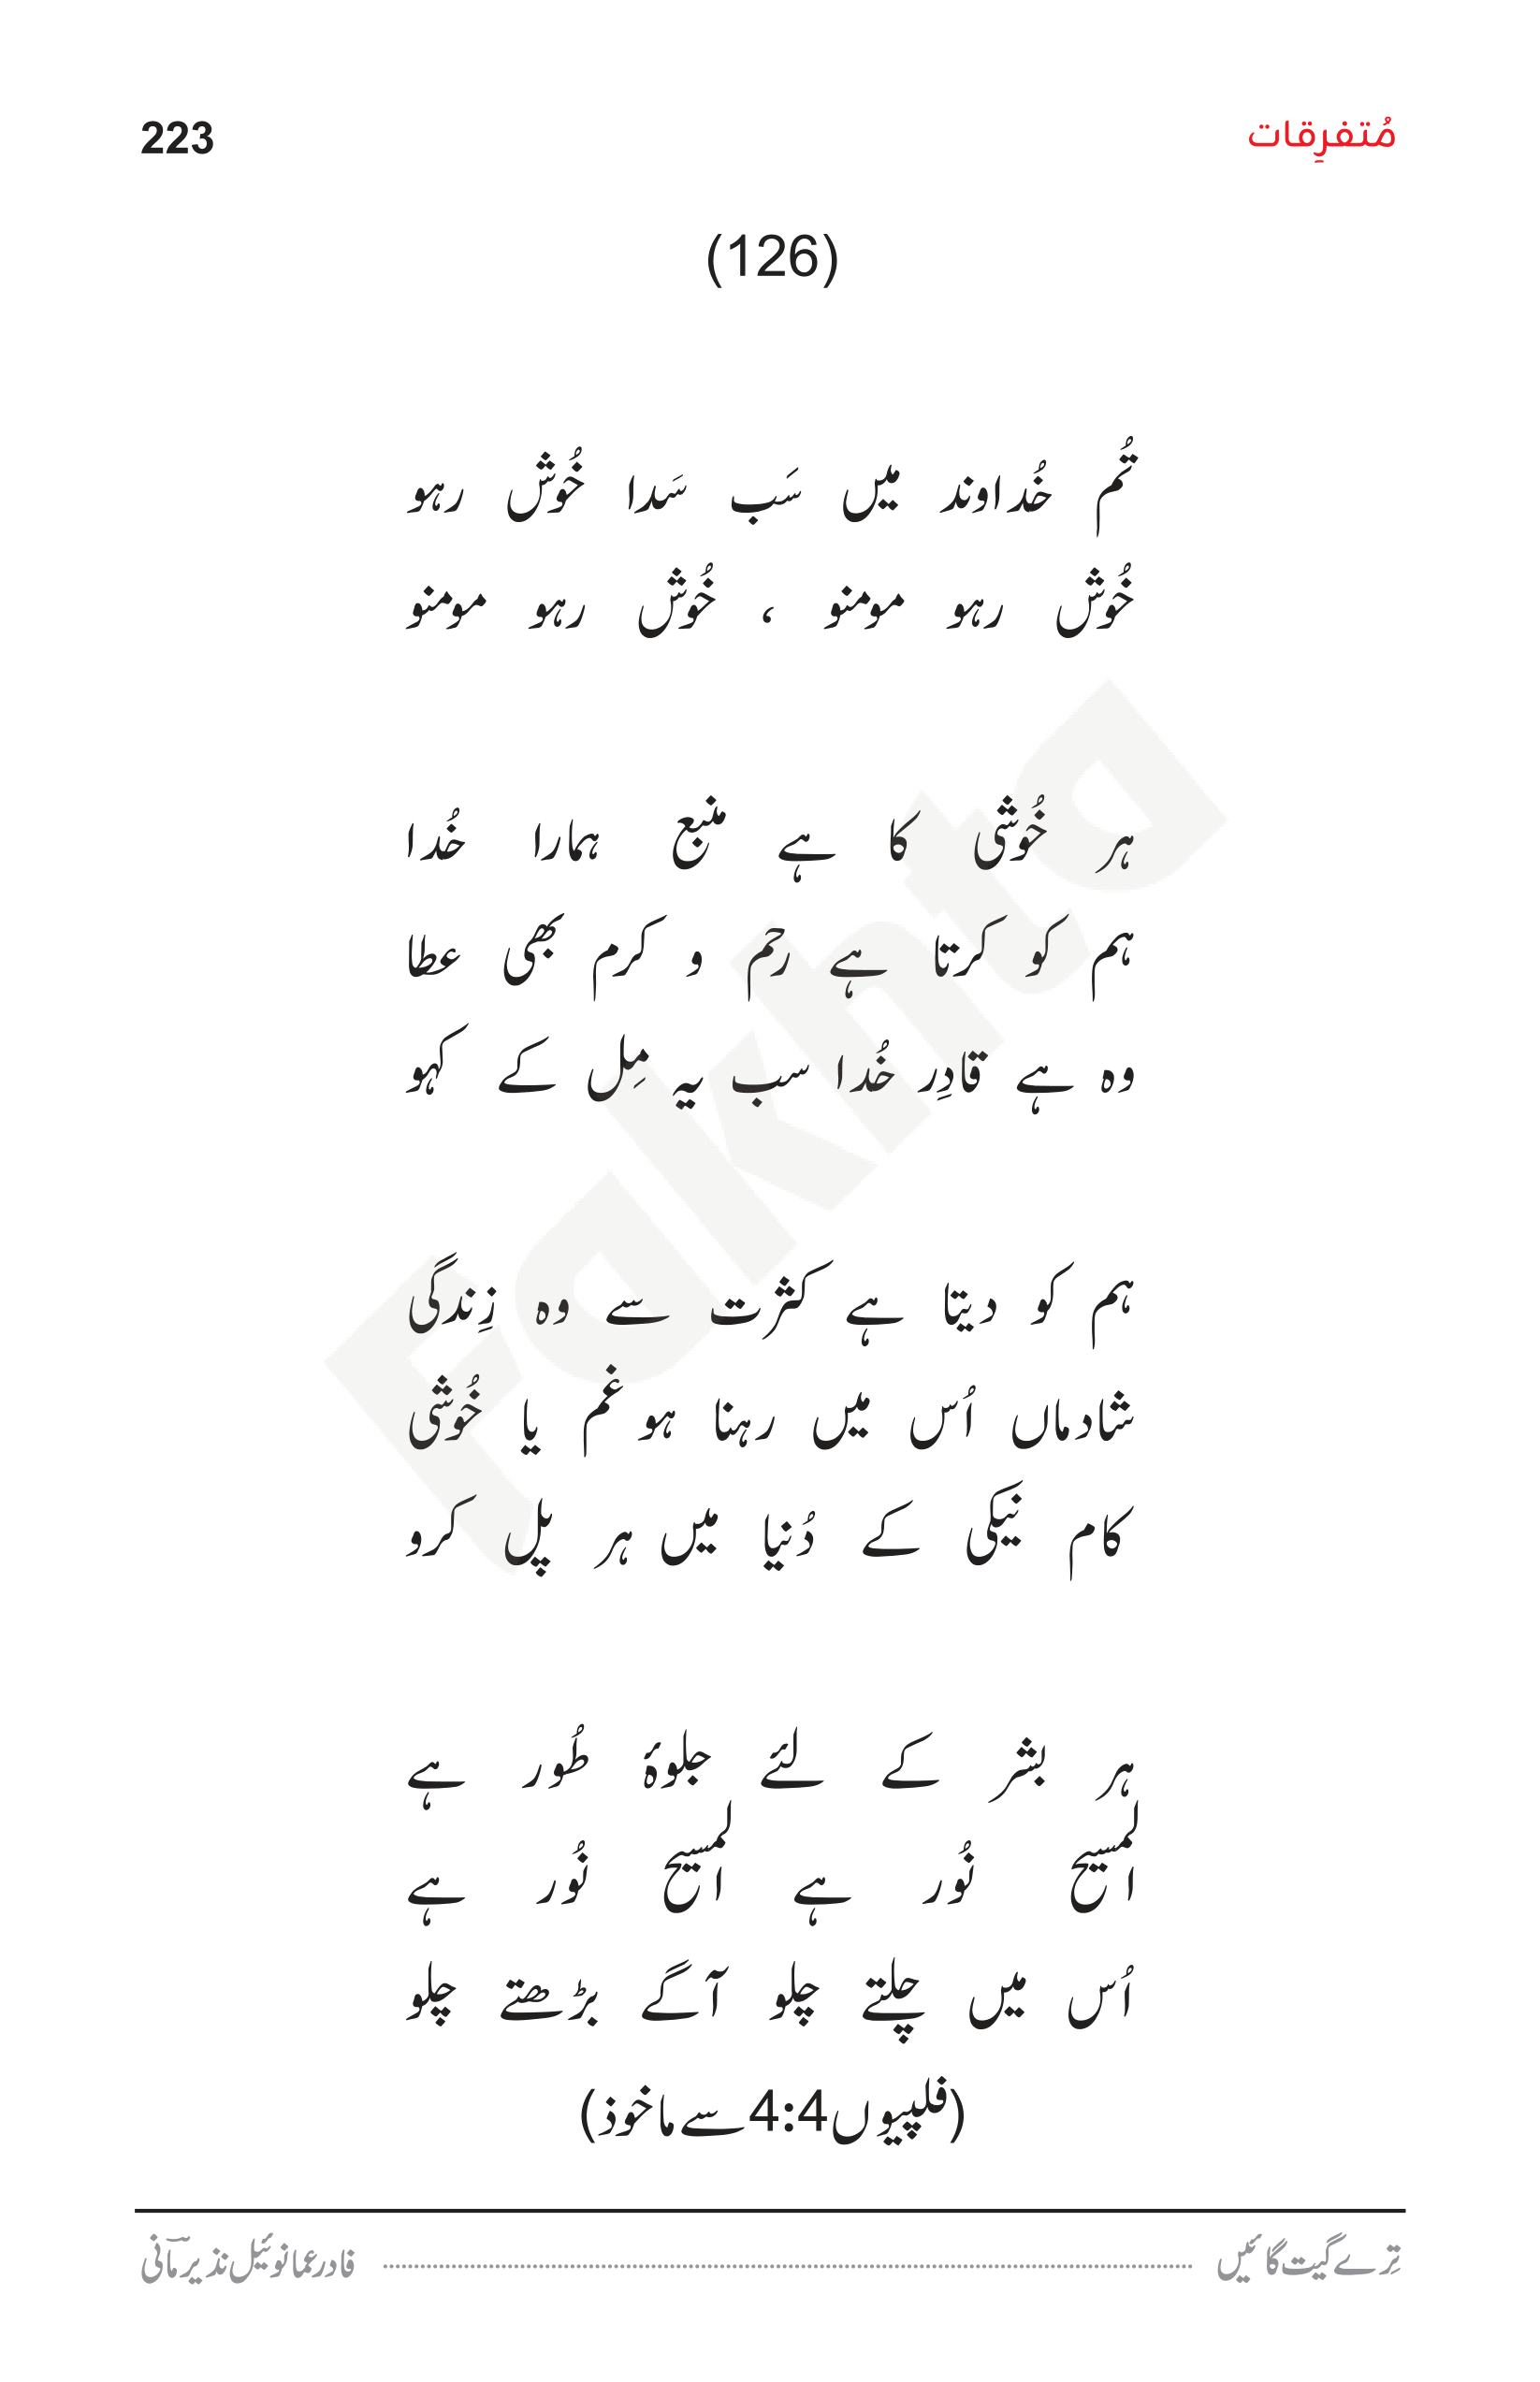 مُتفرِقات
223
(126)
تُم خُداوند میں سَب سَدا خُوش رہو
خُوش رہو مومنو ، خُوش رہو مومنو
ہر خُوشی کا ہے منبع ہمارا خُدا
ہم کو کرتا ہے رحم و کرم بھی عطا
وہ ہے قادِر خُدا سب یہ مِل کے کہو
ہم کو دیتا ہے کثرت سے وہ زِندگی
شادماں اُس میں رہنا ہو غم یا خُوشی
کام نیکی کے دُنیا میں ہر پل کرو
ہر بشر کے لئے جلوۂ طُور ہے
المسیح نُور ہے المسیح نُور ہے
اُس میں چلتے چلو آگے بڑھتے چلو
(فلپیوں 4:4 سے ماخوذ)
تِرے گیت گائیں ........ فادر عمانوئیل نذیر مآنی
Fakhta